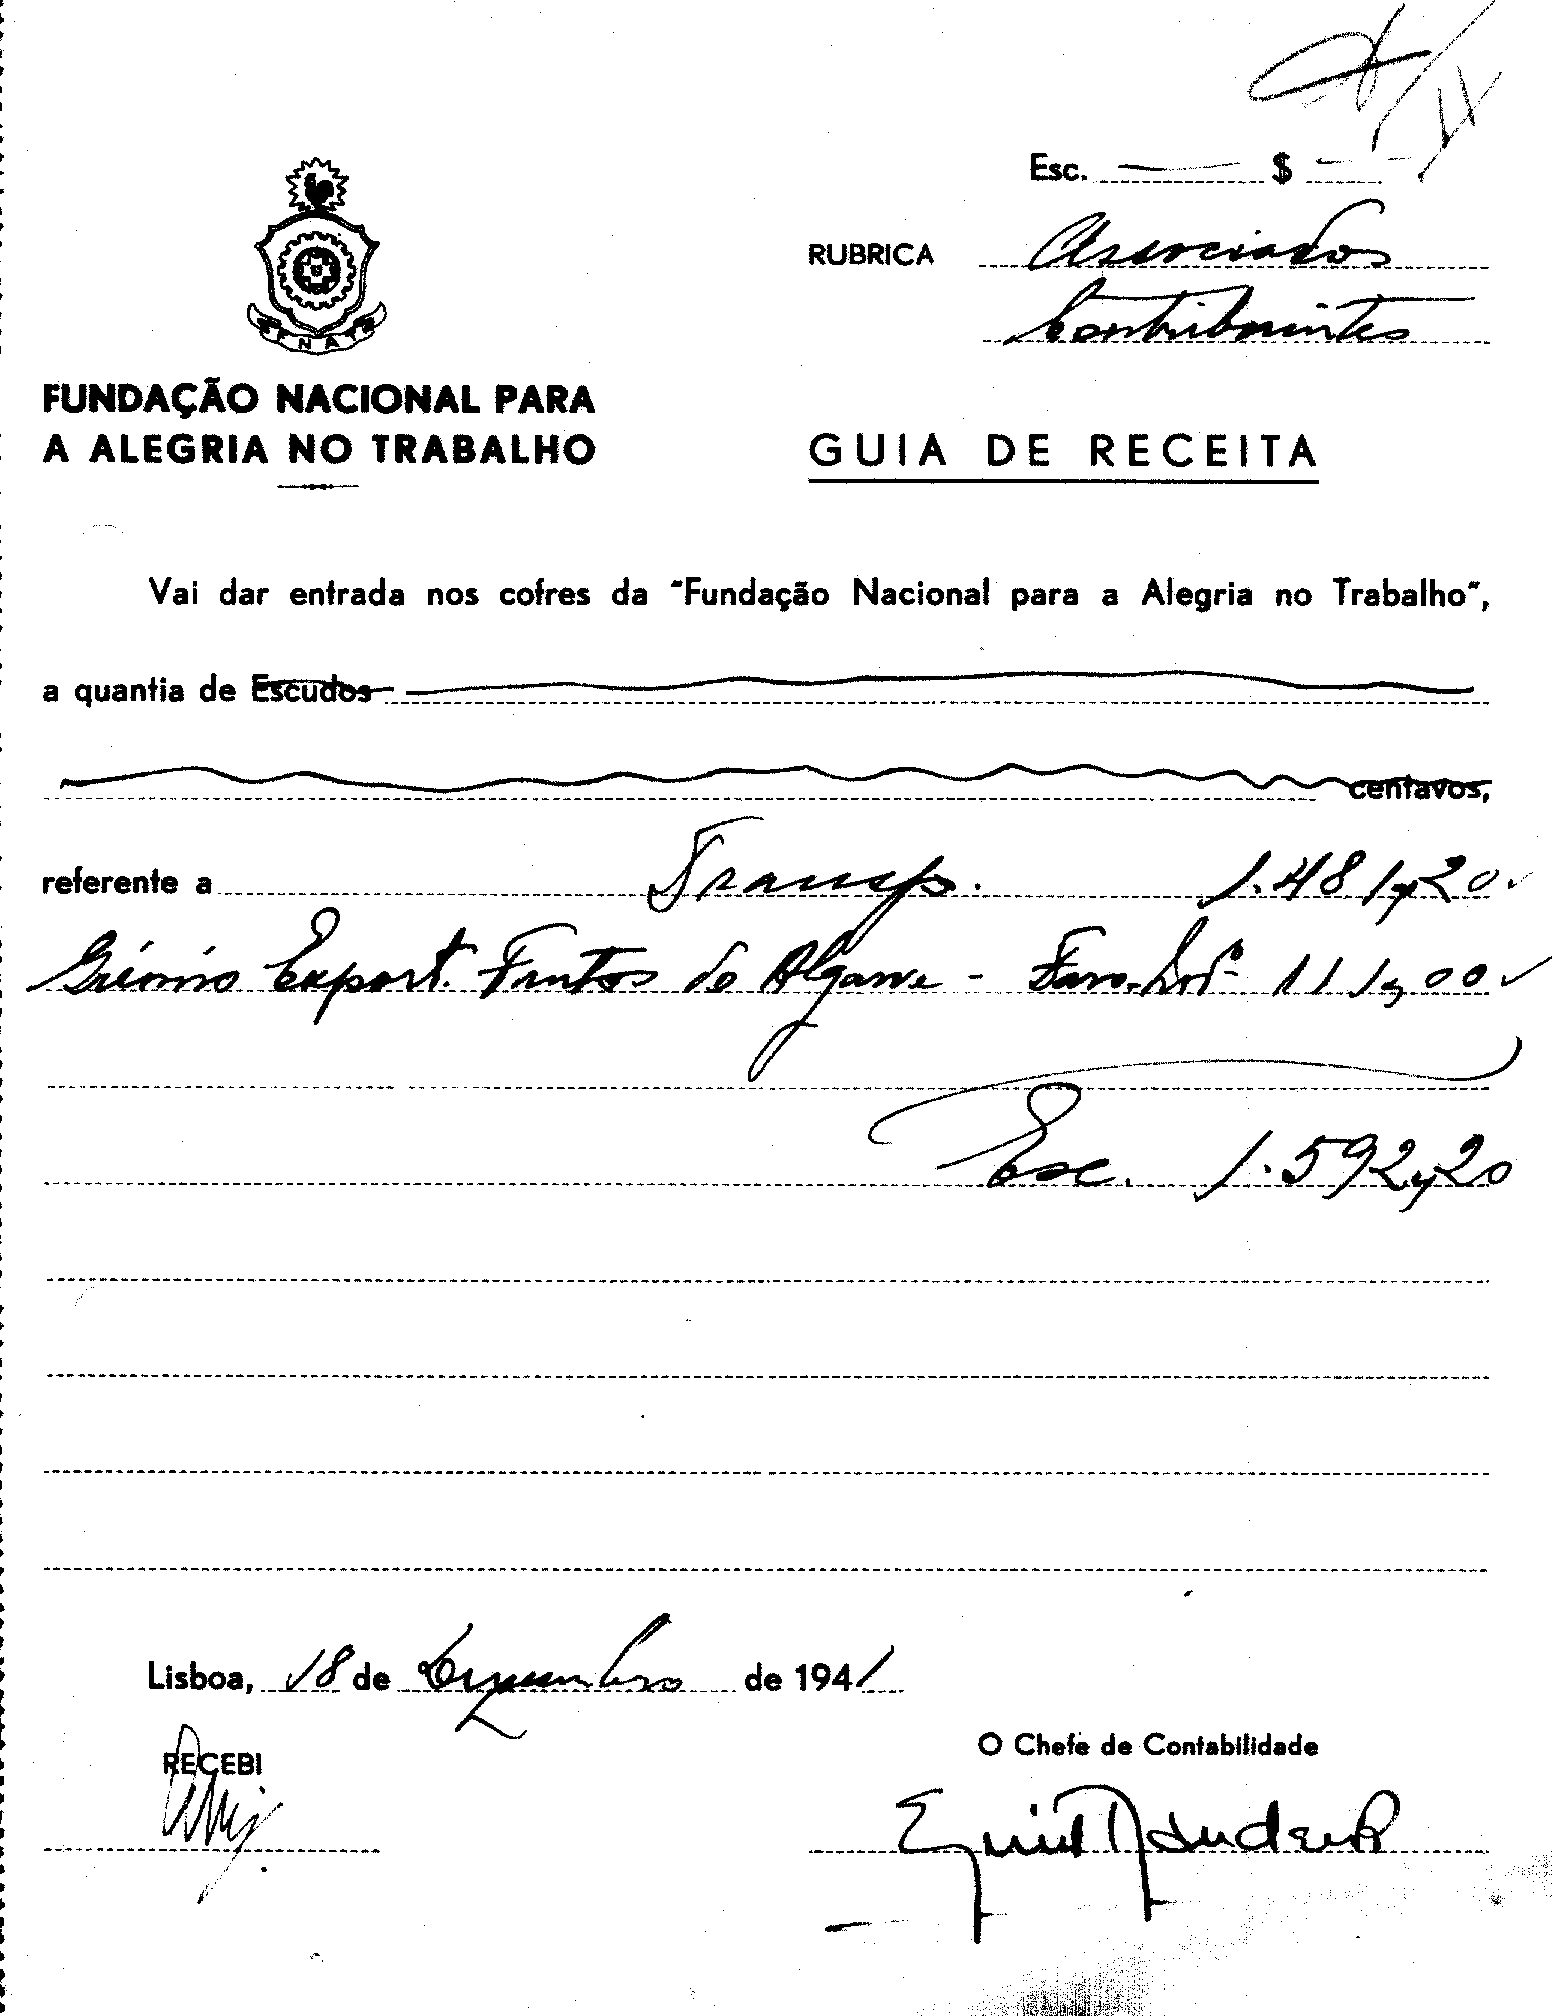 Esc. — $ —
RUBRICA Associados
Contribuintes
FNAT
FUNDAÇÃO NACIONAL PARA
A ALEGRIA NO TRABALHO
GUIA DE RECEITA
Vai dar entrada nos cofres da "Fundação Nacional para a Alegria no Trabalho",
a quantia de Escudos
centavos,
referente a Transp. 1.481$20
Grémio Export. Frutos do Algarve - Faro 111$00
Esc. 1.592$20
Lisboa, 18 de Dezembro de 1941
RECEBI
O Chefe de Contabilidade